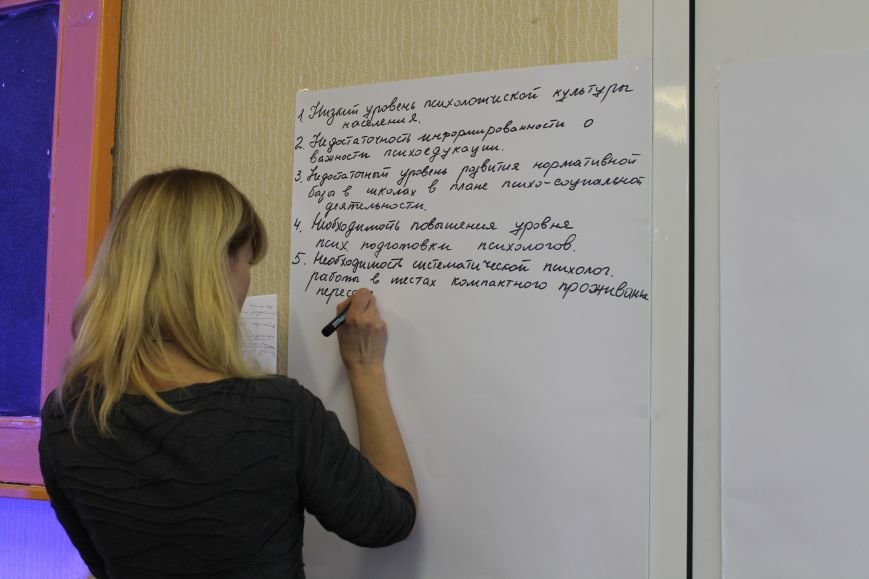 1. Низкий уровень психологической культуры
населения.
2. Недостаточность информированности о
важности психоедукации.
3. Недостаточный уровень развития нормативной
базы в школах в плане психо-социальной
деятельности.
4. Необходимость повышения уровня
псих. подготовки психологов.
5. Необходимость систематической психолог.
работы в местах компактного проживания